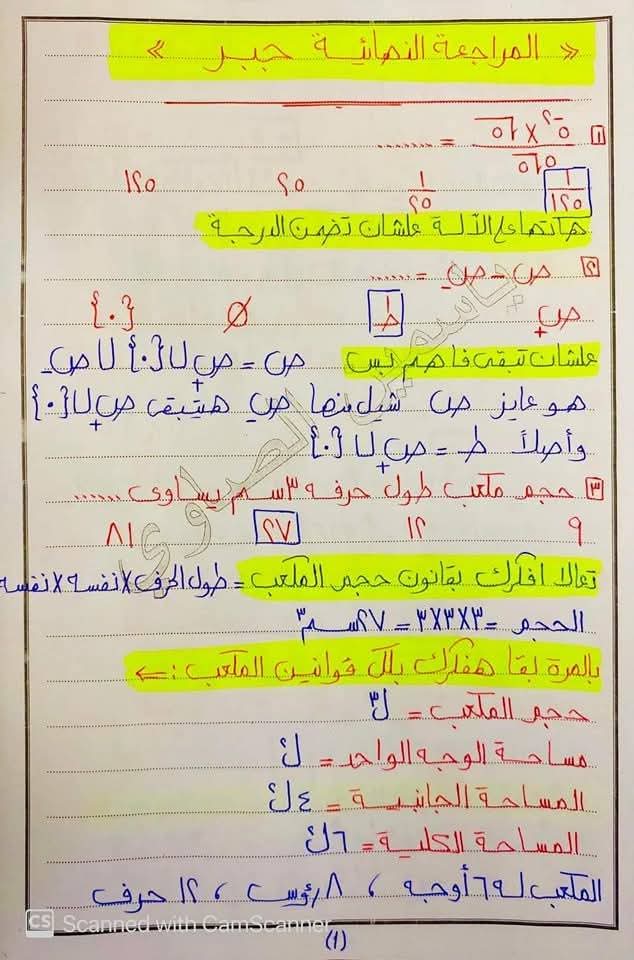 « المراجعة النهائية جبر »
١ ٥⁻² × ٥⁻¹ / = ........
١/١٢٥ ١/٢٥ ٢٥ ١٢٥
هاتها على الآلة علشان تضمن الدرجة
٢ ص - ص₋ = ......
ص₊ ط ∅ {٠}
علشان تبقى فاهم بس ص = ص₊ ∪ {٠} ∪ ص₋
هو عايز ص شيل منها ص₋ هيتبقى ص₊ ∪ {٠}
وأصلاً ط = ص₊ ∪ {٠}
ياسمين الصاوي
٣ حجم مكعب طول حرفه ٣ سم يساوى ......
٩ ١٢ ٢٧ ٨١
تعالا افكرك بقانون حجم المكعب = طول الحرف × نفسه × نفسه
الحجم = ٣×٣×٣ = ٢٧ سم٣
بالمرة بقا هفكرك بكل قوانين المكعب :←
حجم المكعب = ل٣
مساحة الوجه الواحد = ل٢
المساحة الجانبية = ٤ ل٢
المساحة الكلية = ٦ ل٢
المكعب له ٦ أوجه ، ٨ رؤوس ، ١٢ حرف
CS Scanned with CamScanner
(١)